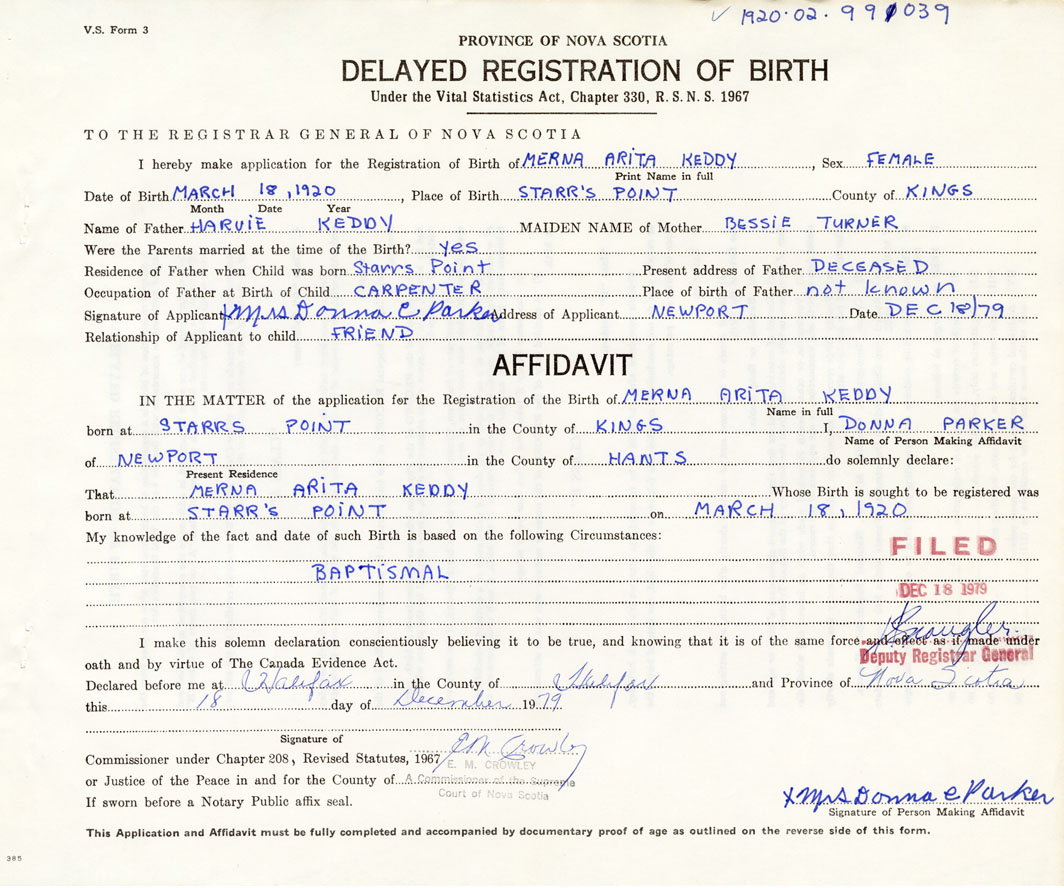 V.S. Form 3
✓ 1920·02·991039
PROVINCE OF NOVA SCOTIA
DELAYED REGISTRATION OF BIRTH
Under the Vital Statistics Act, Chapter 330, R. S. N. S. 1967
TO THE REGISTRAR GENERAL OF NOVA SCOTIA
I hereby make application for the Registration of Birth of MERNA ARITA KEDDY, Sex FEMALE
Print Name in full
Date of Birth MARCH 18, 1920, Place of Birth STARR'S POINT County of KINGS
Month Date Year
Name of Father HARVIE KEDDY MAIDEN NAME of Mother BESSIE TURNER
Were the Parents married at the time of the Birth? yes
Residence of Father when Child was born Starrs Point Present address of Father DECEASED
Occupation of Father at Birth of Child CARPENTER Place of birth of Father not known
Signature of Applicant X Mrs Donna C Parker Address of Applicant NEWPORT Date DEC 18/79
Relationship of Applicant to child FRIEND
AFFIDAVIT
IN THE MATTER of the application for the Registration of the Birth of MERNA ARITA KEDDY
Name in full
born at STARRS POINT in the County of KINGS I, DONNA PARKER
Name of Person Making Affidavit
of NEWPORT in the County of HANTS do solemnly declare:
Present Residence
That MERNA ARITA KEDDY Whose Birth is sought to be registered was
born at STARR'S POINT on MARCH 18, 1920
My knowledge of the fact and date of such Birth is based on the following Circumstances:
FILED
BAPTISMAL
DEC 18 1979
I make this solemn declaration conscientiously believing it to be true, and knowing that it is of the same force and effect as if made under
oath and by virtue of The Canada Evidence Act.
Deputy Registrar General
Declared before me at Halifax in the County of Halifax and Province of Nova Scotia
this 18 day of December 1979
Signature of
E M Crowley
Commissioner under Chapter 208, Revised Statutes, 1967
E. M. CROWLEY
or Justice of the Peace in and for the County of A Commissioner of the Supreme
Court of Nova Scotia
If sworn before a Notary Public affix seal.
X Mrs Donna C Parker
Signature of Person Making Affidavit
This Application and Affidavit must be fully completed and accompanied by documentary proof of age as outlined on the reverse side of this form.
385